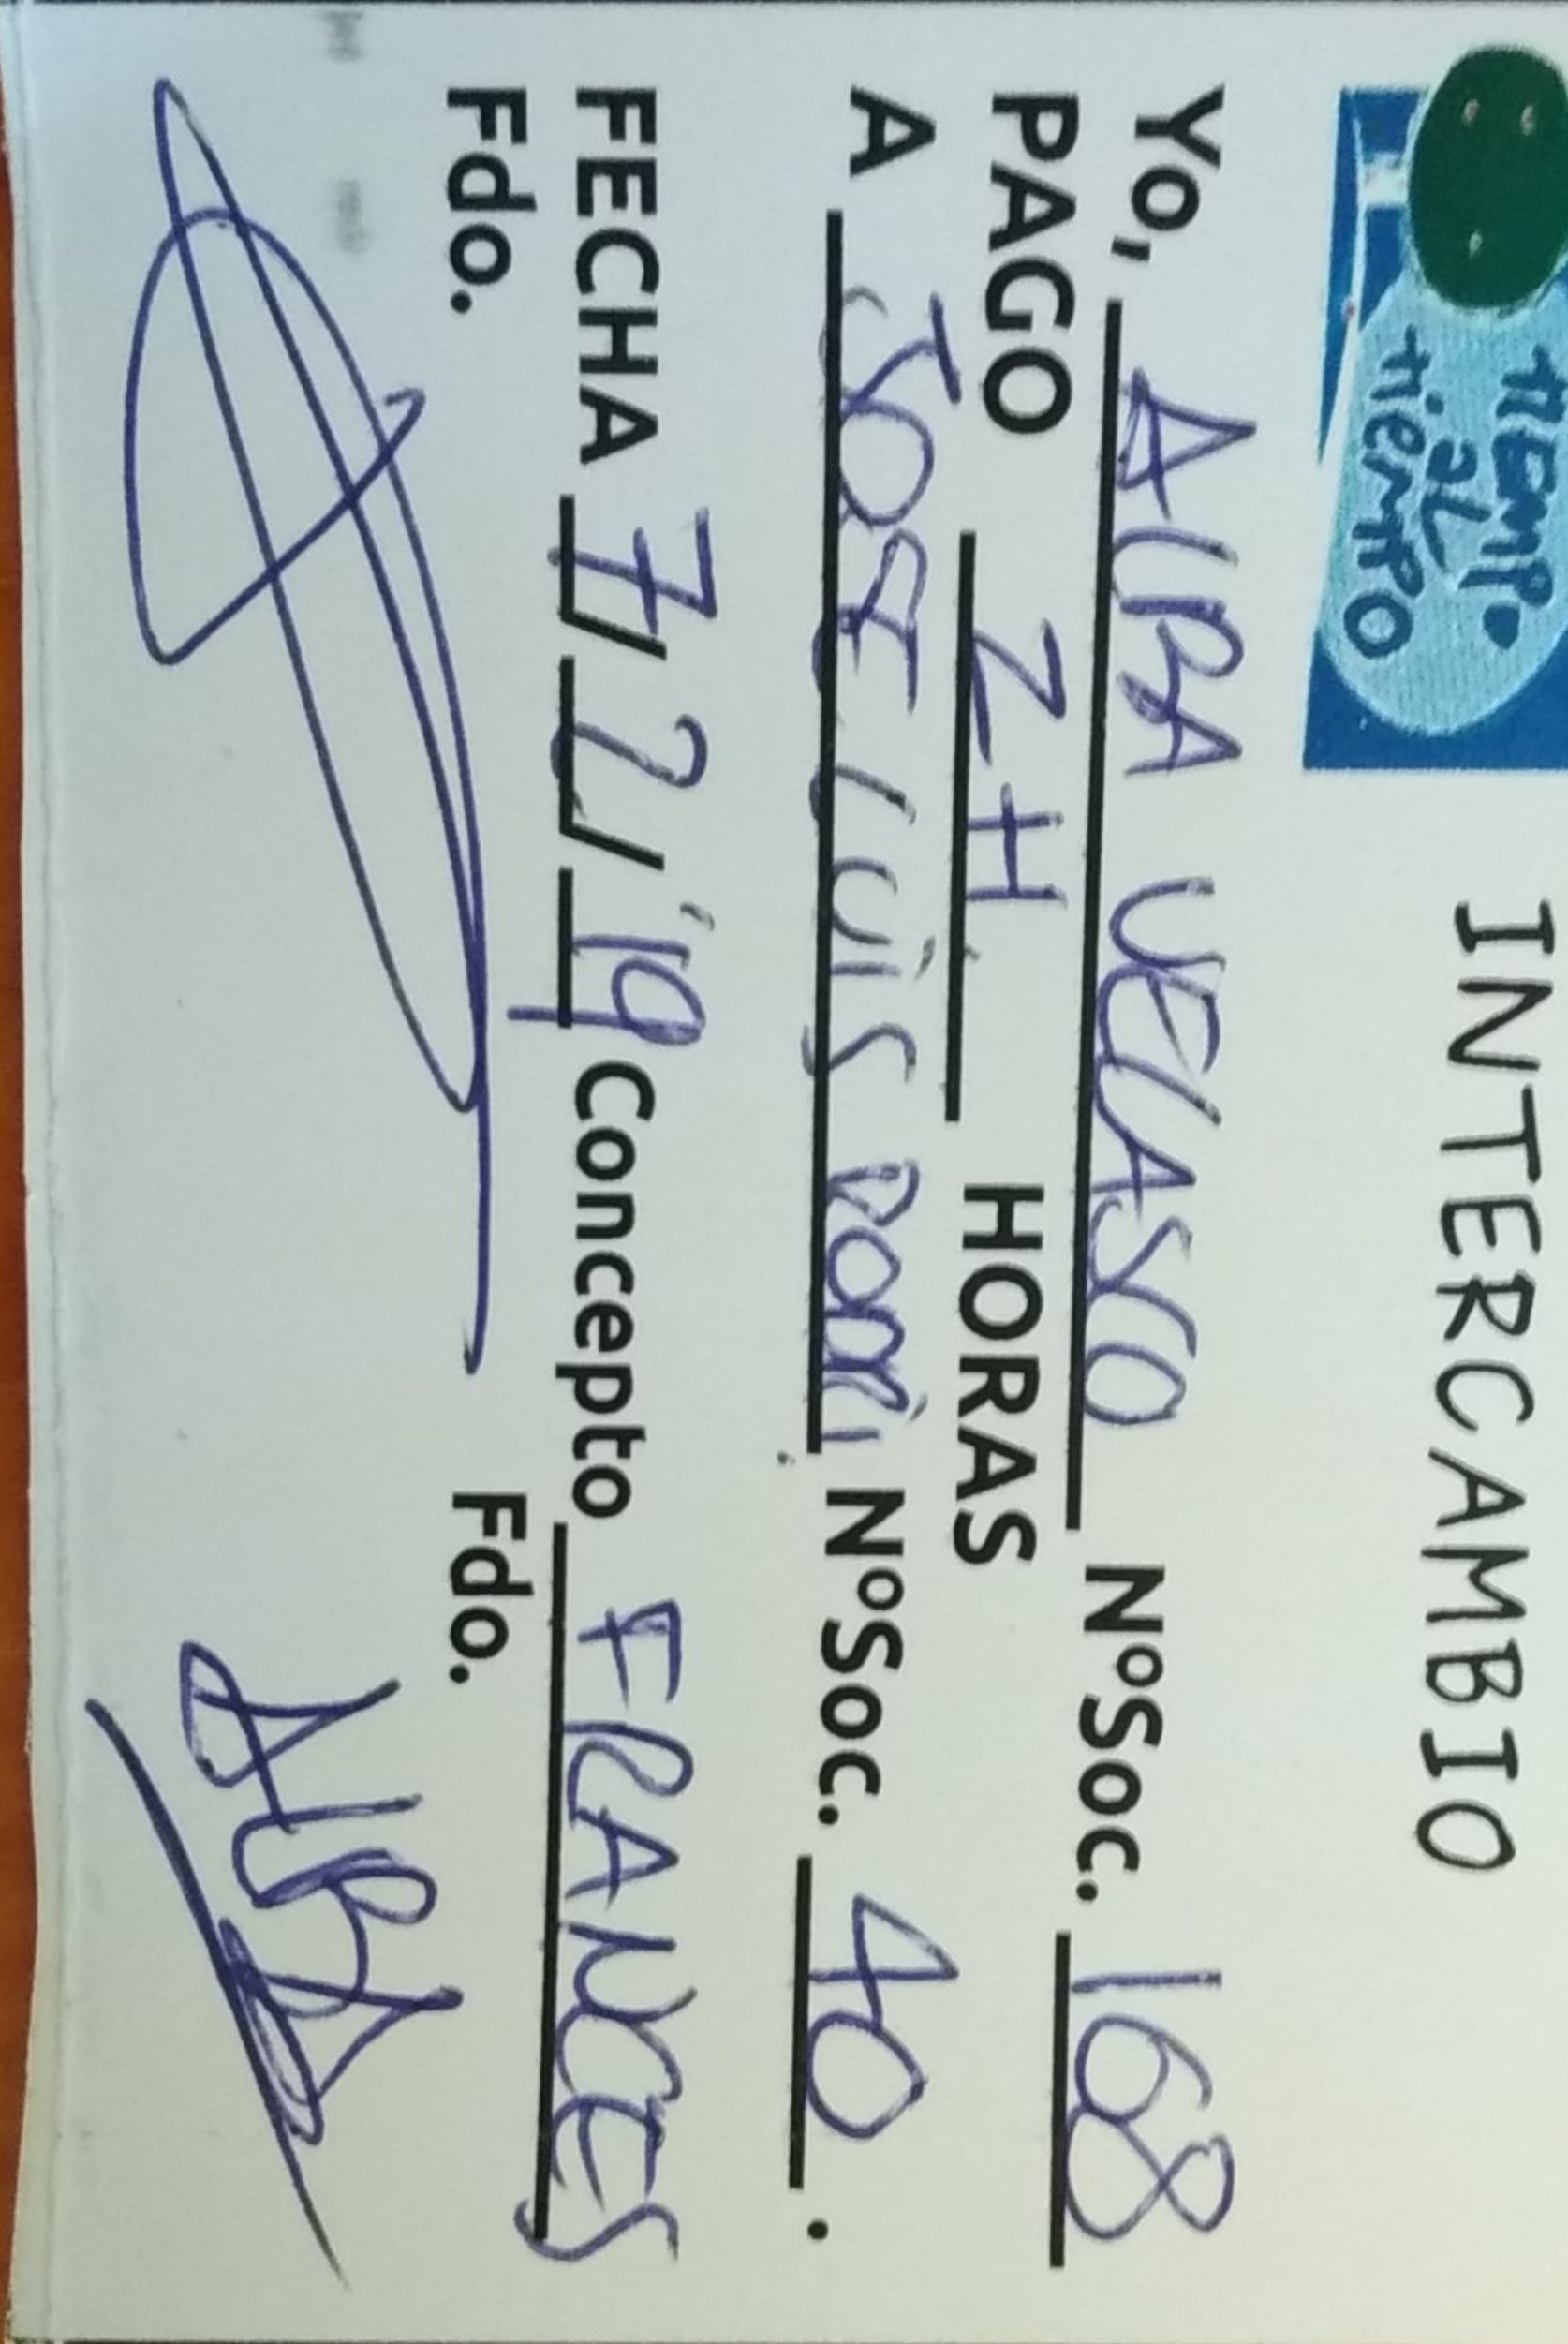 TIEMPO
AL
TIEMPO
INTERCAMBIO
Yo, ALBA VELASCO NºSoc. 168
PAGO 2 H. HORAS
A JOSE LUIS RODRI. NºSoc. 40.
FECHA 7/2/'19 Concepto FRANCES
Fdo. Fdo.
ALBA